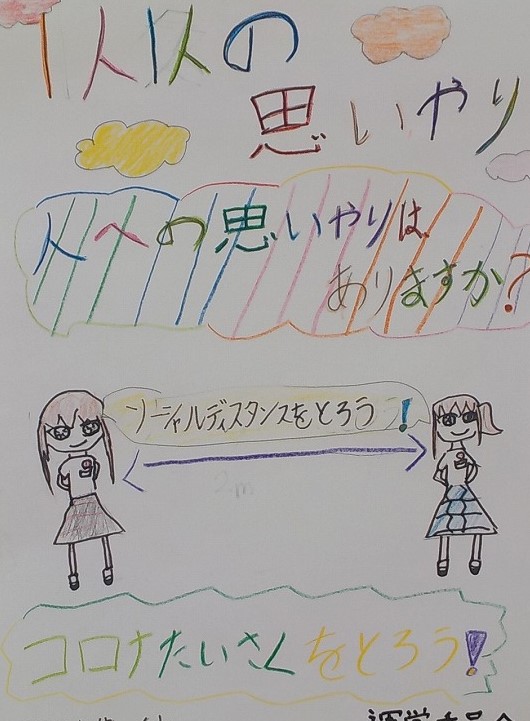 1人1人の
思いやり
人への思いやりは
ありますか?
ソーシャルディスタンスをとろう!
2m
コロナたいさくをとろう!